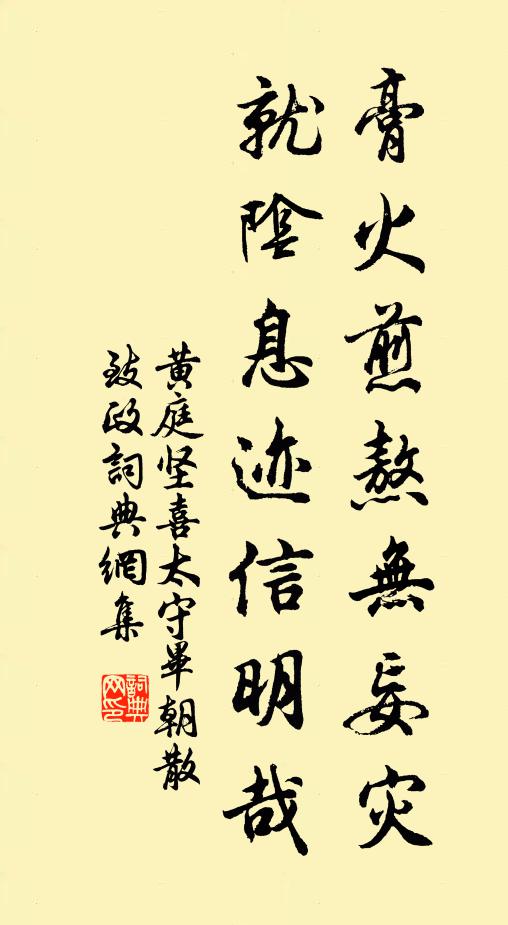 膏火煎熬無妄灾
就陰息迹信明哉
黄庭坚喜太守畢朝散
致政詞典網集
詞典
网印